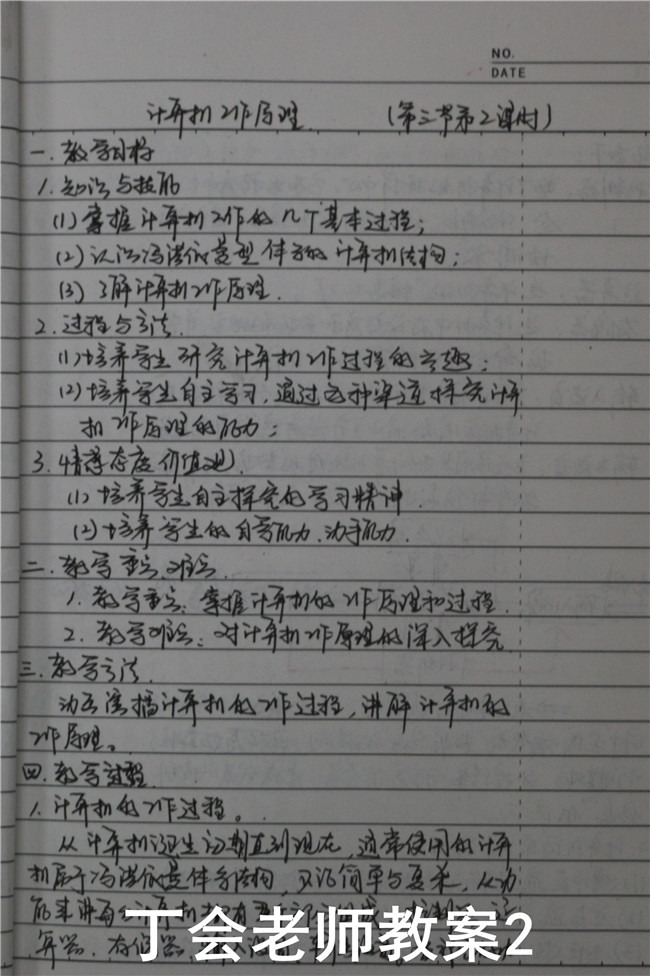 NO.
DATE
计算机工作原理 (第三节第2课时)
一.教学目标
1.知识与技能
(1)掌握计算机工作的几个基本过程;
(2)认识冯诺依曼型体系的计算机结构;
(3)了解计算机工作原理.
2.过程与方法.
(1)培养学生研究计算机工作过程的兴趣;
(2)培养学生自主学习,通过各种渠道探究计算
机工作原理的能力;
3.情感态度价值观.
(1)培养学生自主探究的学习精神.
(2)培养学生的自学能力、动手能力.
二.教学重点、难点.
1.教学重点:掌握计算机的工作原理和过程.
2.教学难点:对计算机工作原理的深入探究
三.教学方法.
动画演播计算机的工作过程,讲解计算机的
工作原理。
四.教学过程.
1.计算机的工作过程。
从计算机诞生初期直到现在,通常使用的计算
机属于冯诺依曼体系结构,无论简单与复杂,从功
能来讲
算器、存储器、
丁会老师教案2